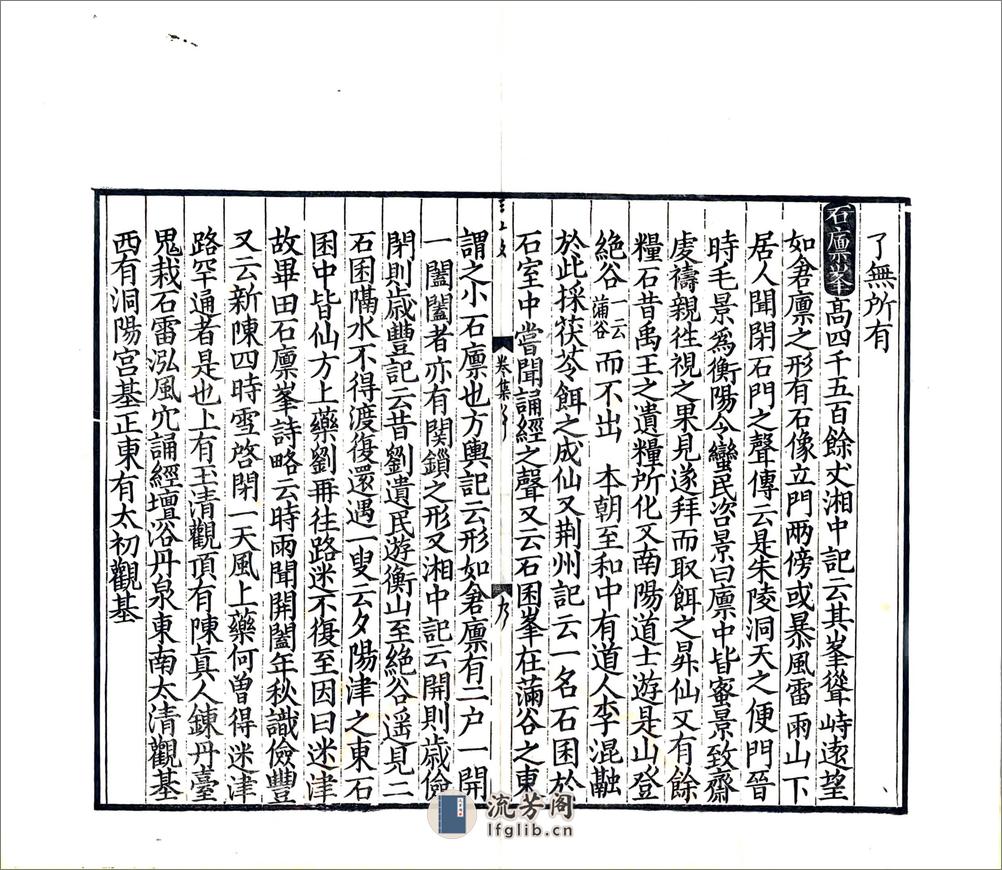 了無所有
石廩峯髙四千五百餘丈湘中記云其峯聳峙遠望
如倉廩之形有石像立門兩傍或暴風雷雨山下
居人聞閉石門之聲傳云是朱陵洞天之便門晉
時毛景爲衡陽令蠻民咨景曰廩中皆蜜景致齋
虔禱親徃視之果見遂拜而取餌之昇仙又有餘
糧石昔禹王之遺糧所化又南陽道士遊是山登
絶谷一云蒲谷而不出　本朝至和中有道人李混融
於此採茯苓餌之成仙又荆州記云一名石囷於
石室中嘗聞誦經之聲又云石囷峯在蒲谷之東
卷集
九
謂之小石廩也方輿記云形如倉廩有二户一開
一闔闔者亦有関鎖之形又湘中記云開則歲儉
閉則歲豐記云昔劉遺民遊衡山至絶谷遥見二
石囷隔水不得渡復還遇一叟云夕陽津之東石
囷中皆仙方上藥劉再往路迷不復至因曰迷津
故畢田石廩峯詩略云時雨聞開闔年秋識儉豐
又云新陳四時雪啓閉一天風上藥何曽得迷津
路罕通者是也上有玉清觀頂有陳真人鍊丹臺
鬼栽石雷泓風穴誦經壇浴丹泉東南太清觀基
西有洞陽宫基正東有太初觀基
流芳阁
lfglib.cn